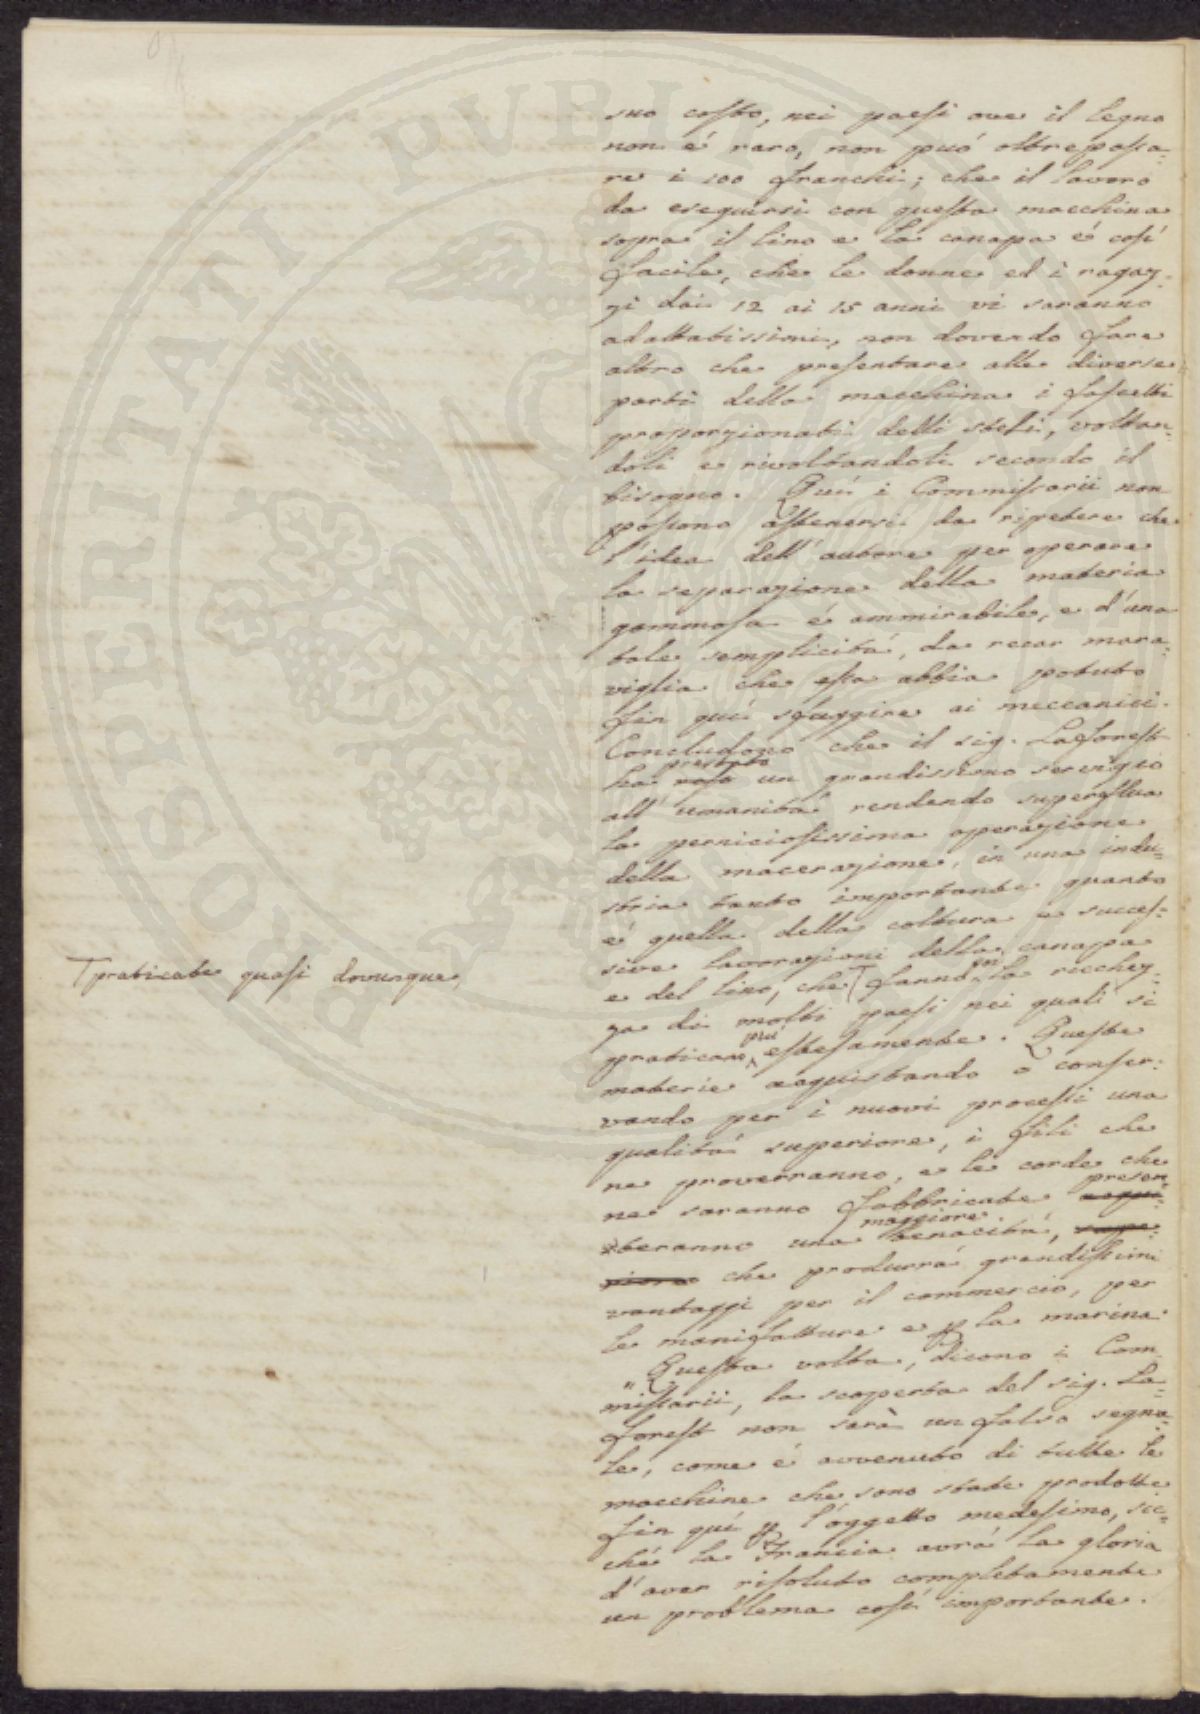 suo costo, nei paesi ove il legno
non é raro, non puó oltrepassa-
re i 100 franchi; che il lavoro
da eseguirsi con questa macchina
sopra il lino e la canapa é cosí
facile, che le donne ed i ragaz-
zi dai 12 ai 15 anni vi saranno
adattatissimi, non dovendo fare
altro che presentare alle diverse
parti della macchina i fascetti
proporzionati delli steli, voltan-
doli e rivoltandoli secondo il
bisogno. Quí i Commissarii non
possono astenersi da ripetere che
l'idea dell'autore per operare
la separazione della materia
gommosa é ammirabile, e d'una
tale semplicitá, da recar mara-
viglia che essa abbia potuto
fin quí sfuggire ai meccanici.
Concludono che il sig. Laforest
prestato
ha reso un grandissimo servigio
all'umanitá rendendo superflua
la perniciosissima operazione
della macerazione, in una indu-
stria tanto importante quanto
é quella della coltura e succes-
sive lavorazioni della canapa
e del lino, che fanno la ricchez-
T praticate quasi dovunque,
za di molti paesi nei quali si
piú
praticano estesamente. Queste
materie acquistando o conser-
vando per i nuovi processi una
qualitá superiore, i fili che
ne proverranno, e le corde che
presen-
ne saranno fabbricate acqui-
maggiore
steranno una tenacitá, supe-
riore che produrrá grandissimi
vantaggi per il commercio, per
le manifatture e p la marina.
"Questa volta, dicono i Com-
missarii, la scoperta del sig. La-
forest non sará un falso segna-
le, come é avvenuto di tutte le
macchine che sono state prodotte
fin quí p l'oggetto medesimo, sic-
ché la Francia avrá la gloria
d'aver risoluto completamente
un problema cosí importante.
PROSPERITATI PVBLI